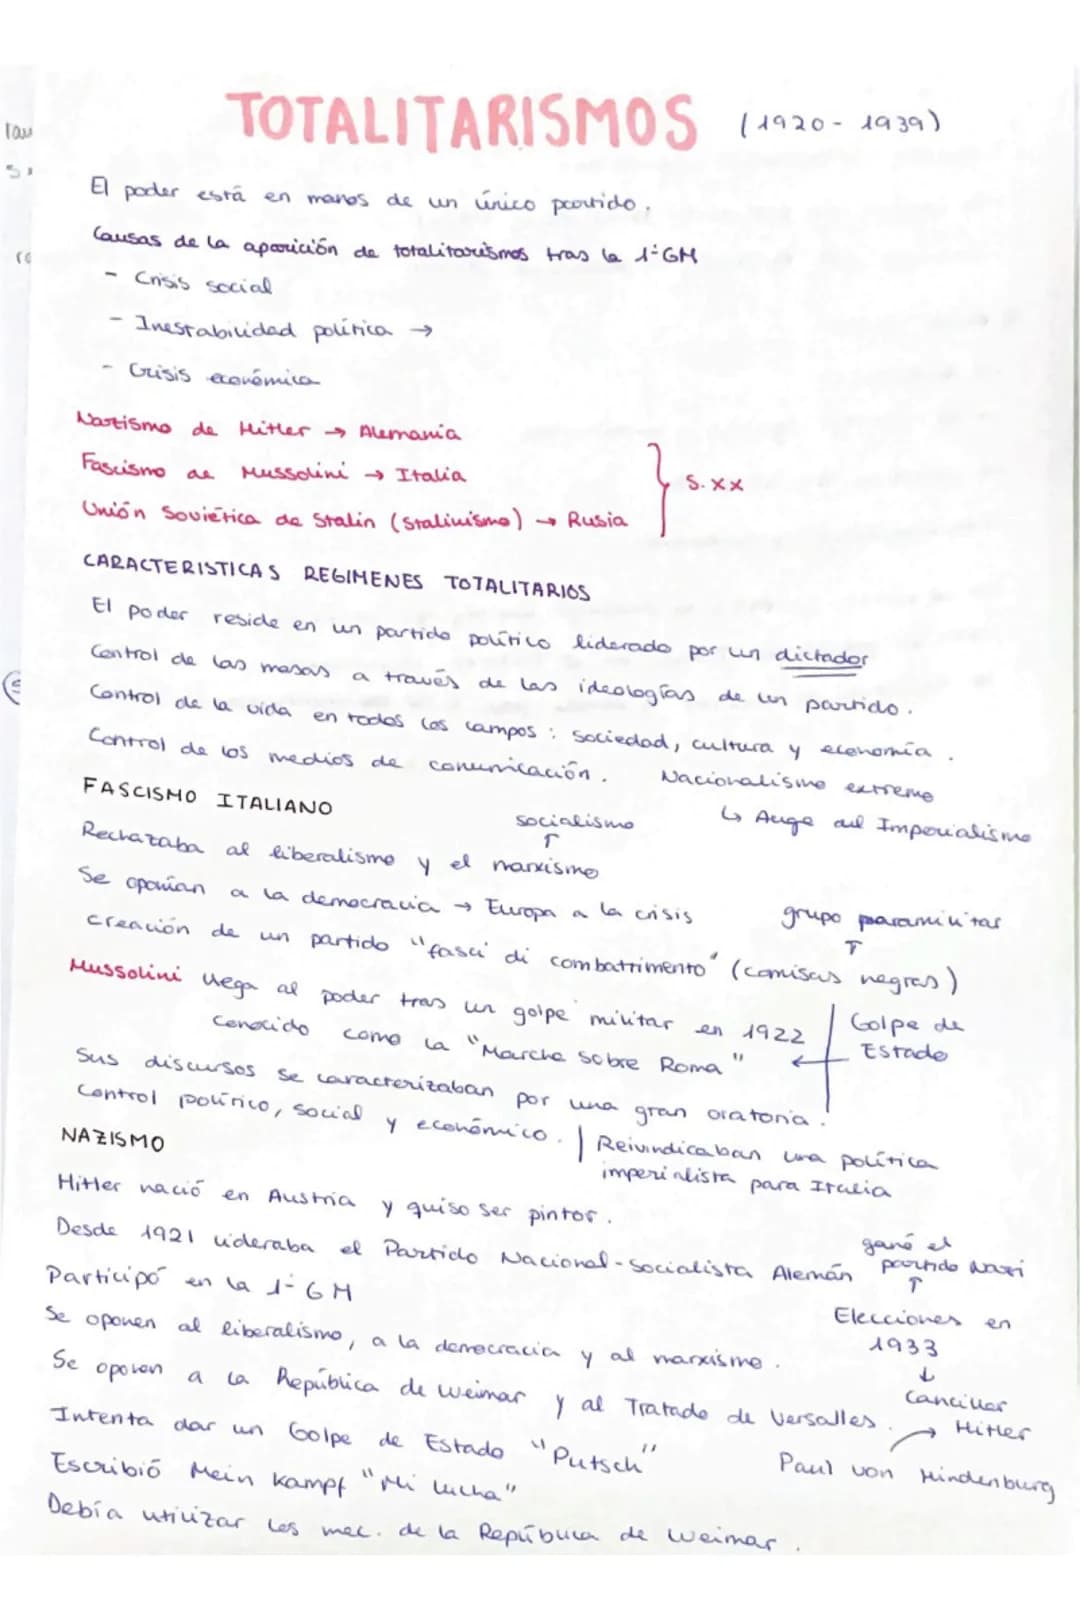 TOTALITARISMOS (1920 - 1939)
El poder está en manos de un único partido.
Causas de la aparición de totalitarismos tras la 1ª GM
- Crisis social
- Inestabilidad política →
- Crisis económica
Nazismo de Hitler → Alemania
Fascismo de Mussolini → Italia
S. XX
Unión Soviética de Stalin (Stalinismo) → Rusia
CARACTERISTICAS REGIMENES TOTALITARIOS
El poder reside en un partido político liderado por un dictador
Control de las masas a través de las ideologías de un partido.
Control de la vida en todos los campos: sociedad, cultura y economía.
Control de los medios de comunicación. Nacionalismo extremo
↳ Auge del Imperialismo
FASCISMO ITALIANO
socialismo
↑
Rechazaba al liberalismo y el marxismo
Se oponían a la democracia → Europa a la crisis
grupo paramilitar
↑
creación de un partido "fasci di combattimento" (camisas negras)
Mussolini llega al poder tras un golpe militar en 1922
conocido como la "Marcha sobre Roma" ←
Golpe de
Estado
Sus discursos se caracterizaban por una gran oratoria.
Control político, social y económico. | Reivindicaban una política
imperialista para Italia
NAZISMO
Hitler nació en Austria y quiso ser pintor.
Desde 1921 lideraba el Partido Nacional-Socialista Alemán
ganó el
partido Nazi
↑
Elecciones en
1933
↓
Canciller
→ Hitler
Paul von Hindenburg
Participó en la 1ª GM
Se oponen al liberalismo, a la democracia y al marxismo.
Se oponen a la República de Weimar y al Tratado de Versalles.
Intenta dar un Golpe de Estado "Putsch"
Escribió Mein Kampf "Mi lucha"
Debía utilizar los mec. de la República de Weimar.